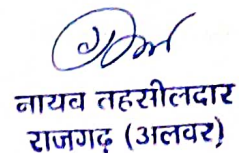 नायब तहसीलदार
राजगढ़ (अलवर)